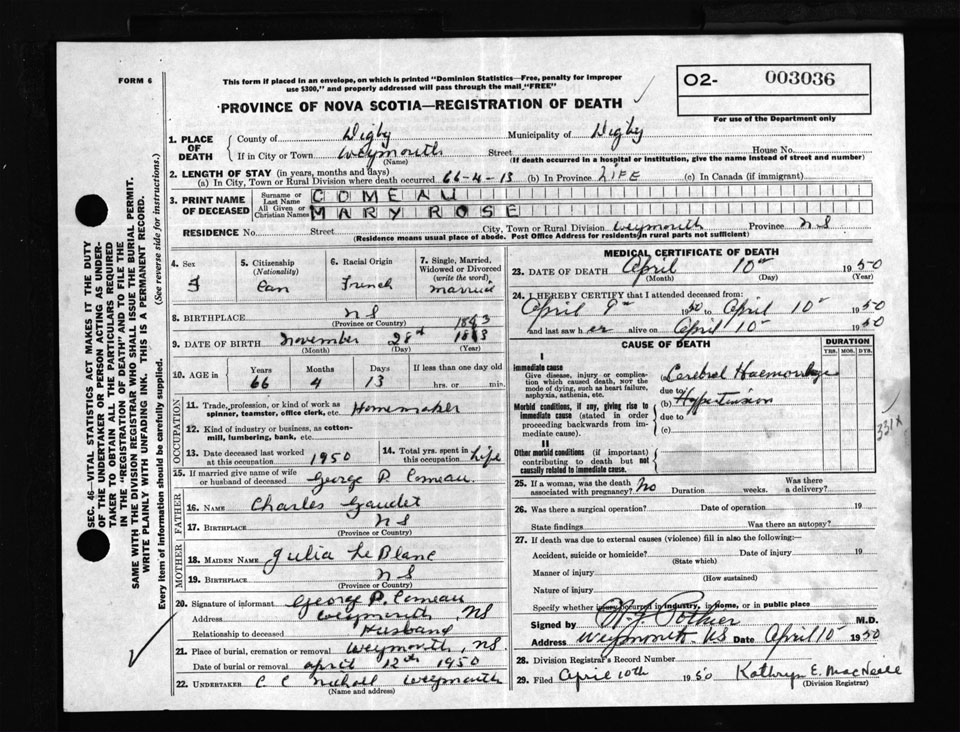 FORM 6
This form if placed in an envelope, on which is printed "Dominion Statistics—Free, penalty for improper
use $300," and properly addressed will pass through the mail "FREE"
PROVINCE OF NOVA SCOTIA—REGISTRATION OF DEATH
02- 003036
For use of the Department only
1. PLACE OF DEATH
County of Digby Municipality of Digby
If in City or Town Weymouth Street House No.
(Name) (If death occurred in a hospital or institution, give the name instead of street and number)
2. LENGTH OF STAY (in years, months and days)
(a) In City, Town or Rural Division where death occurred 66-4-13 (b) In Province LIFE (c) In Canada (if immigrant)
3. PRINT NAME OF DECEASED
Surname or Last Name COMEAU
All Given or Christian Names MARY ROSE
RESIDENCE No. Street City, Town or Rural Division Weymouth Province NS
(Residence means usual place of abode. Post Office Address for residents in rural parts not sufficient)
4. Sex F
5. Citizenship (Nationality) Can
6. Racial Origin French
7. Single, Married, Widowed or Divorced (write the word) married
8. BIRTHPLACE NS
(Province or Country)
1883
9. DATE OF BIRTH November 28th
(Month) (Day) (Year)
10. AGE in Years Months Days If less than one day old
66 4 13 hrs. or min.
OCCUPATION
11. Trade, profession, or kind of work as spinner, teamster, office clerk, etc. Homemaker
12. Kind of industry or business, as cotton-mill, lumbering, bank, etc.
13. Date deceased last worked at this occupation 1950
14. Total yrs. spent in this occupation Life
15. If married give name of wife or husband of deceased George P. Comeau.
FATHER
16. NAME Charles Gaudet
17. BIRTHPLACE NS
(Province or Country)
MOTHER
18. MAIDEN NAME Julia LeBlanc
19. BIRTHPLACE NS
(Province or Country)
20. Signature of informant George P. Comeau
Address Weymouth, NS
Relationship to deceased Husband
21. Place of burial, cremation or removal Weymouth, NS.
Date of burial or removal april 12th 1950
22. UNDERTAKER C C Weymouth
(Name and address)
MEDICAL CERTIFICATE OF DEATH
23. DATE OF DEATH April 10th 1950
(Month) (Day) (Year)
24. I HEREBY CERTIFY that I attended deceased from:
April 9th 1950 to April 10th 1950
and last saw her alive on April 10th 1950
CAUSE OF DEATH
DURATION
YRS. MOS. DYS.
I
Immediate cause
Give disease, injury or complication which caused death, not the mode of dying, such as heart failure, asphyxia, asthenia, etc.
Cerebral Haemorrhage
due to
Morbid conditions, if any, giving rise to immediate cause (stated in order proceeding backwards from immediate cause).
(b) Hypertension
due to
(c)
331X
II
Other morbid conditions (if important) contributing to death but not causally related to immediate cause.
25. If a woman, was the death associated with pregnancy? No Duration weeks. Was there a delivery?
26. Was there a surgical operation? Date of operation 19
State findings Was there an autopsy?
27. If death was due to external causes (violence) fill in also the following:—
Accident, suicide or homicide? Date of injury 19
(State which)
Manner of injury
(How sustained)
Nature of injury
Specify whether injury occurred in industry, in home, or in public place
Signed by Pothier M.D.
Address Weymouth NS Date April 10th 1950
28. Division Registrar's Record Number
29. Filed April 10th 1950 Kathryn E. MacNeill
(Division Registrar)
SEC. 46—VITAL STATISTICS ACT MAKES IT THE DUTY
OF THE UNDERTAKER OR PERSON ACTING AS UNDER-
TAKER TO OBTAIN ALL THE PARTICULARS REQUIRED
IN THE "REGISTRATION OF DEATH" AND TO FILE THE
SAME WITH THE DIVISION REGISTRAR WHO SHALL ISSUE THE BURIAL PERMIT.
WRITE PLAINLY WITH UNFADING INK. THIS IS A PERMANENT RECORD.
Every item of information should be carefully supplied. (See reverse side for instructions.)